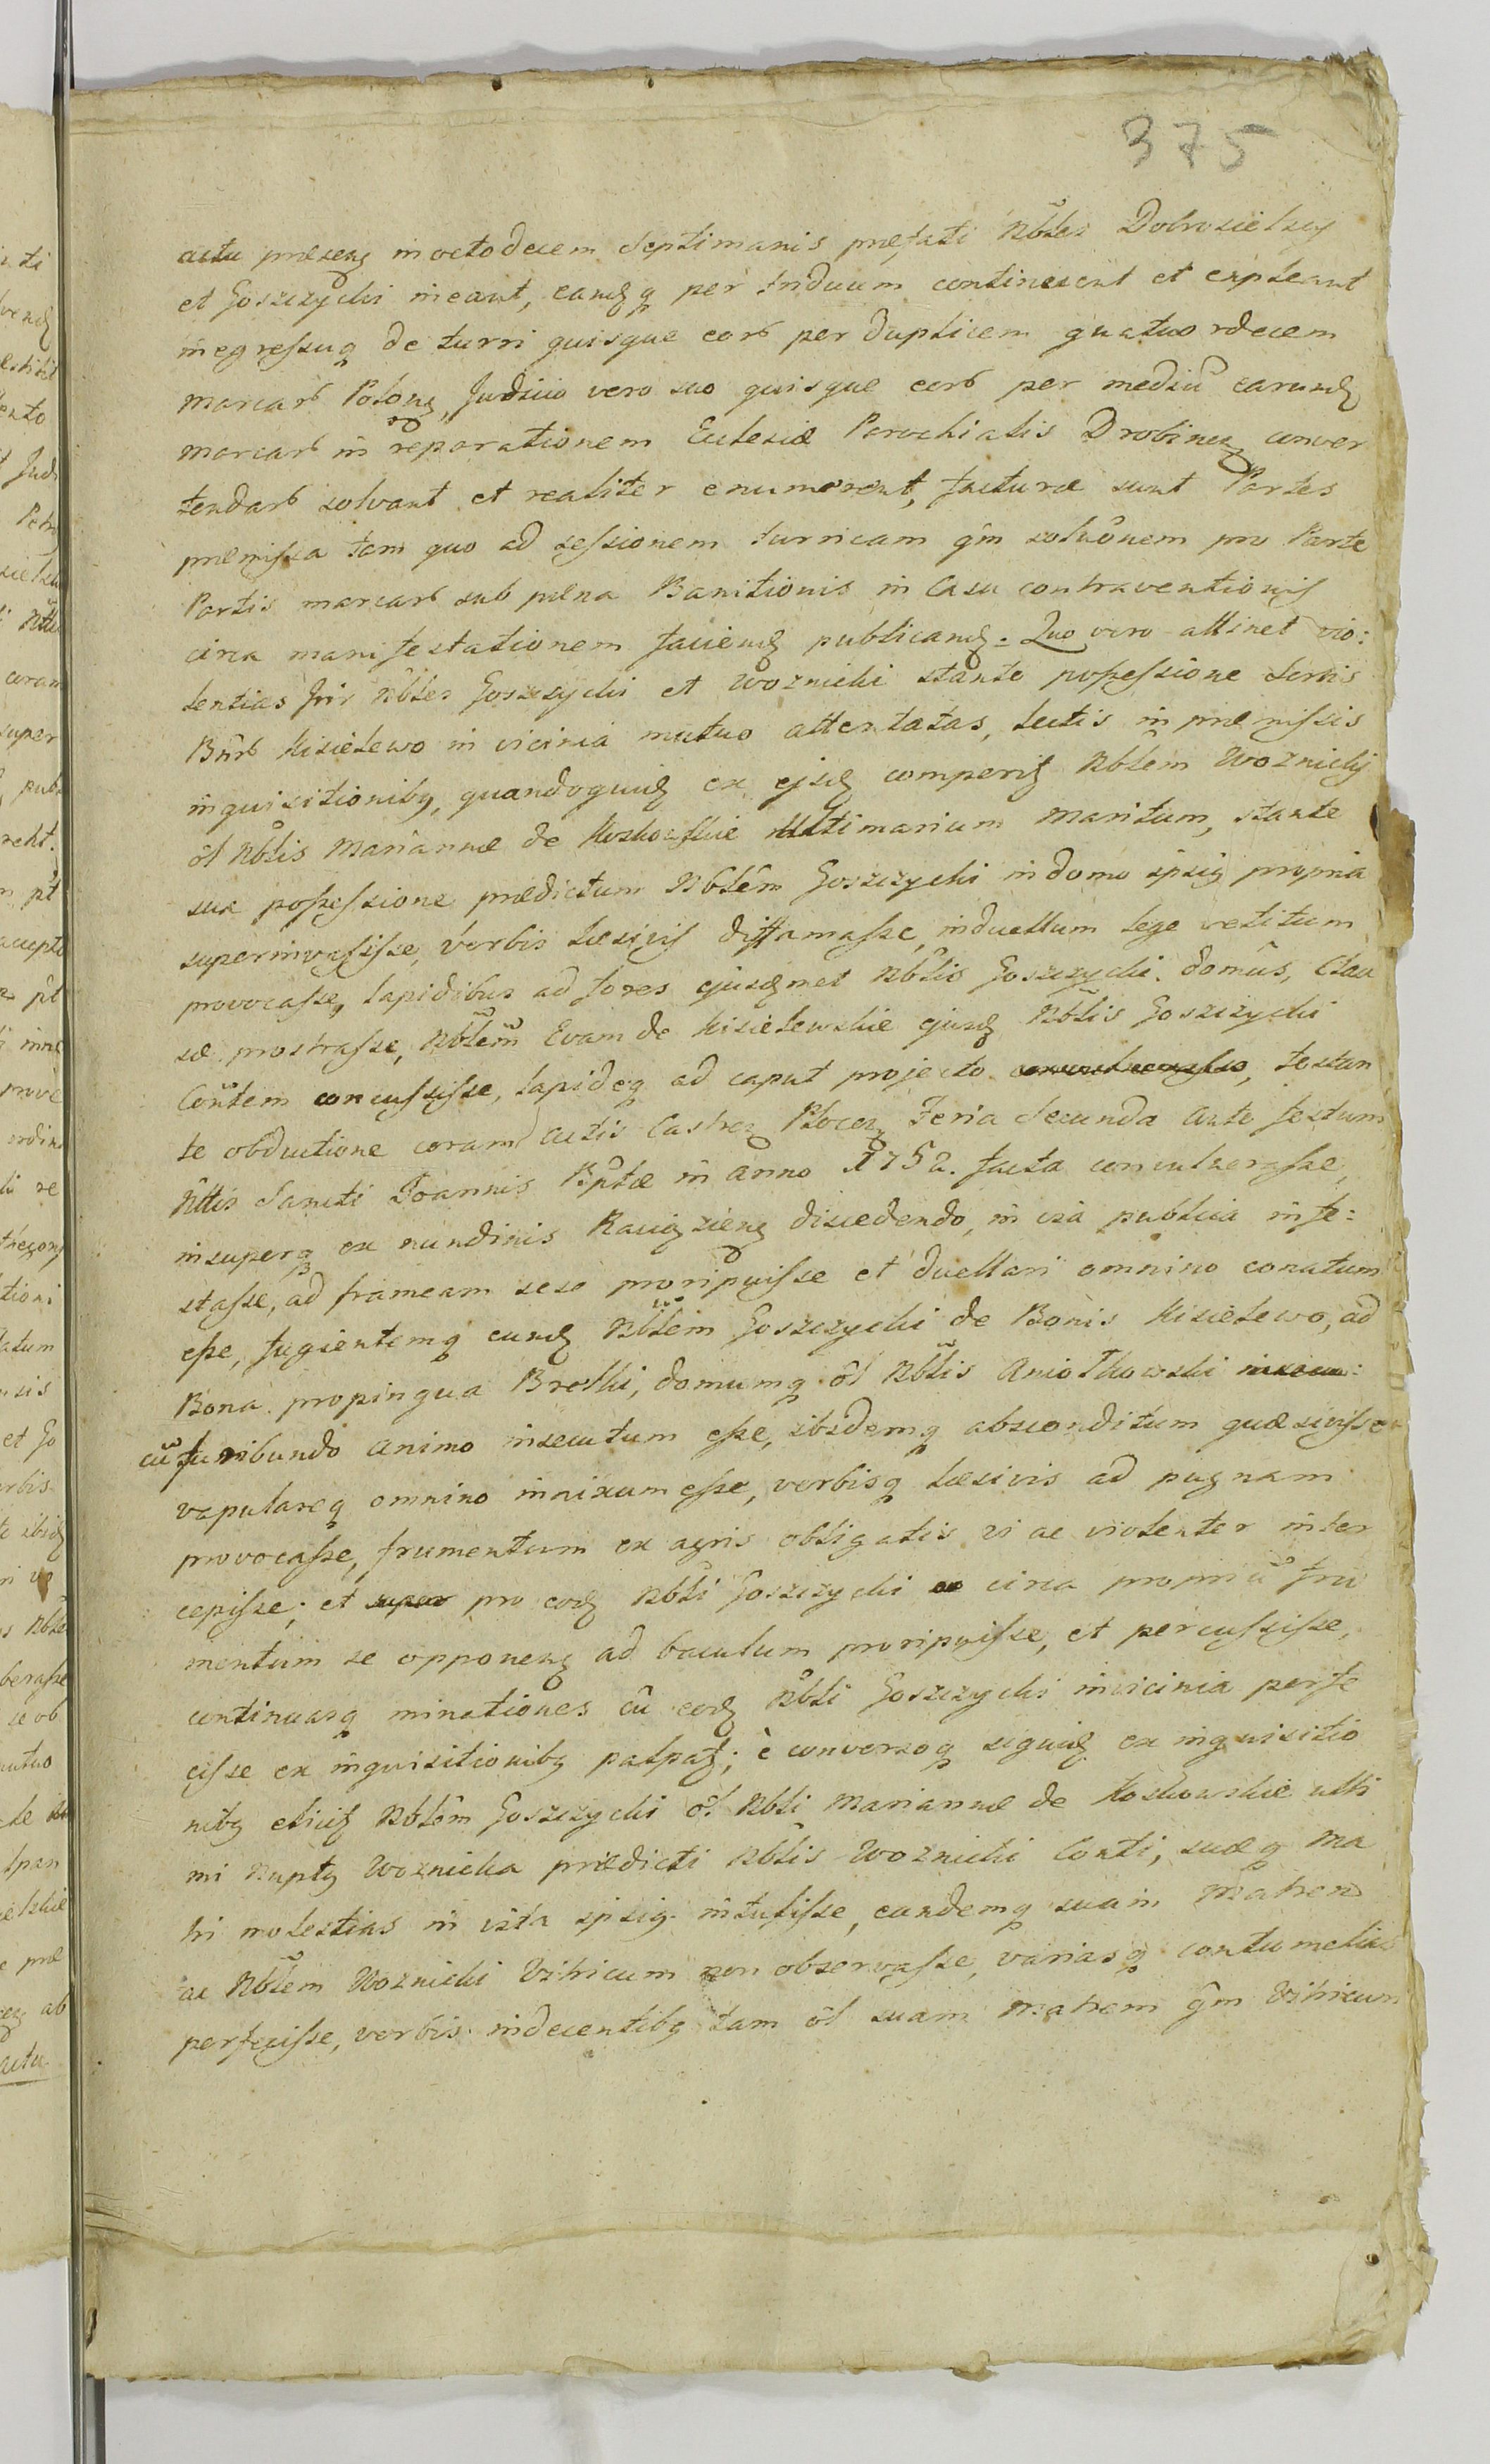 375
actu præsenȝ in octodecem Septimanis præfati Nbles Dobrosielscy
et Goszczycki ineant, eamqȝ per triduum contineant et expleant
inegressuqȝ de turri quisque eorƀ per duplicem quatuordecem
marcarƀ Polonȝ, Judicio vero suo quisque eorƀ per mediũ earundȝ
marcarƀ in reparationem Ecclesiæ Parochialis Drobinenȝ conver
tendarƀ solvant et realiter enumerent, facturæ sunt Partes
præmissa tam quo ad sessionem turricam qm̃ solũonem pro Parte
Partis marcarƀ sub pæna Banitionis in Casu contraventionis
circa manifestationem faciendȝ publicandȝ. Quo vero attinet vio:
lentias Inr Nbles Goszczycki et Woznicki stante possessione Sortis
Bnrƀ Kisielewo in vicinia mutuo attentatas, lectis in præmissis
inquisitionibȝ, quandoquidȝ ex ejsdȝ comperitȝ Nblem Woznicki
ol Nblis Mariannæ de Koskowskie Ultimarium Maritum, stante
sua possessione prædictum Nblem Goszczycki in domo ipsiȝ propria
superinvasisse, verbis læsivis diffamasse, in duellum lege vetitum
provocasse, lapidibus ad fores ejusdȝmet Nblis Goszczycki domûs, Clau
sæ prostrasse, Nblem Evam de Kisielewskie ejusdȝ Nblis Goszczycki
Contem concussisse, lapideqȝ ad caput projecto, testan
te obductione coram actis Castrȝ Plocenȝ Feria Secunda ante festum
Nttis Sancti Joannis Bptæ in anno 1752. facta convulnerasse,
insuperqȝ ex nundinis Raciązienȝ discedendo, in via publica infe:
stasse, ad frameam sese proripuisse et duellari omnino conatum
esse, fugientemqȝ eundȝ Nblem Goszczycki de Bonis Kisielewo, ad
Bona propinqua Breski, domumqȝ ol Nblis Aniołkowski
cũ furibundo animo insecutum esse, ibidemqȝ absconditum quæsivisse
vapulareqȝ omnino innixum esse, verbisqȝ læsivis ad pugnam
provocasse, frumentum ex agris obligatis vi ac violenter inter
cepisse; et pro eodȝ Nbli Goszczycki circa propriũ fru
mentum se opponenȝ ad baculum proripuisse, et percussisse,
continuasqȝ minationes cũ eodȝ Nbli Goszczycki in vicinia perfe
cisse ex inquisitionibȝ patpatȝ; è conversoqȝ siquidȝ ex inquisitio
nibȝ elicitȝ Nblem Goszczycki ol Nbli Mariannæ de Koskowskie ulti
mi nuptȝ Woznicka prædicti Nblis Woznicki Conti, suæqȝ Ma
tri molestias in vita ipsiȝ intulisse, eandemqȝ suam Matrem
ac Nblem Woznicki Vitricum non observasse, variasqȝ contumelias
perfecisse, verbis indecentibȝ tam ol suam Matrem qm̃ Vitricum